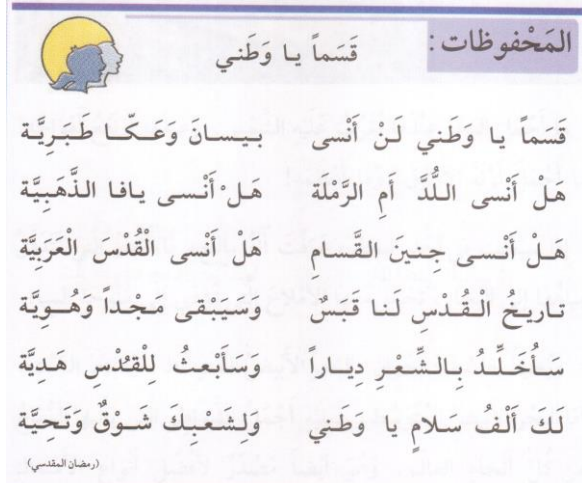 المَحْفوظات : قَسَماً يا وَطَني
قَسَماً يا وَطَني لَنْ أَنْسى بـيـسـانَ وَعَـكّــا طَـبَـرِيَّـة
هَلْ أَنْسى اللُّدَّ أَمِ الرَّمْلة هَـلْ أَنْـسـى يافا الذَّهَبِيَّة
هَـلْ أَنْـسـى جِـنـينَ القَّسامِ هَلْ أَنْسى الْقُدْسَ الْعَرَبِيَّة
تـاريـخُ الْـقُـدْسِ لَـنـا قَـبَـسٌ وسَـيَـبْـقى مَـجْـداً وَهُــوِيَّـة
سَـأُخَـلِّـدُ بِـالـشِّـعْـرِ دِيـاراً وسَـأَبْـعـثُ لِلْقُدْسِ هَـدِيَّة
لَكَ أَلْفُ سَلامٍ يا وَطَني وَلِـشَـعْـبِـكَ شَـوْقٌ وَتَـحِـيَّـة
(رمضان المقدسي)